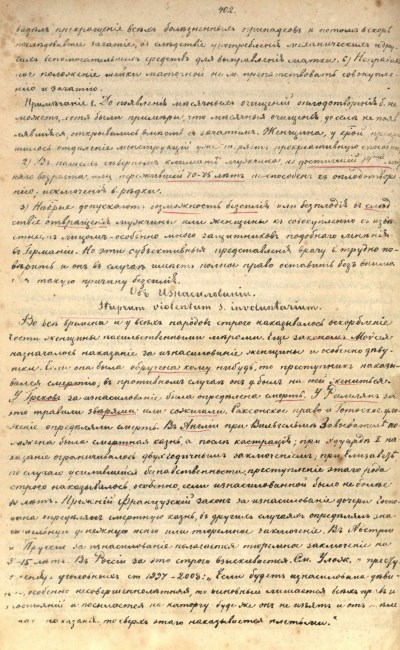 402.
прекращение всѣхъ болѣзненныхъ припадковъ и потомъ вскорѣ
послѣдовавшее зачатіе, въ слѣдствіе употребленія механическихъ
вспомогательныхъ средствъ для выправленія матки. 6)
положеніе шейки маточной
и зачатію.
Примѣчаніе 1. До появленія мѣсячныхъ очищеній оплодотвореніе б. не
можетъ, хотя были примѣры, что мѣсячныя очищенія до села не
открывались вмѣстѣ съ зачатіемъ. Женщина, у срой
отдѣленіе менструацій уже
2) Въ нашемъ сѣверномъ климатѣ мужчина, не достигшій
возраста или пережившій 70-75 лѣтъ неспособенъ къ оплодотворе-
нію, исключенія рѣдки.
3) допускаютъ возможность безсилія или безплодія въ слѣд-
ствіе отвращенія мужчины или женщины къ совокупленію съ извѣ-
стнымъ лицомъ - особенно много защитниковъ подобнаго мнѣнія
въ Германіи. Но эти субъективныя представленія врачу трудно по-
вѣрить и онъ въ случаѣ имѣетъ полное право оставить безъ внима
такую причину безсилія.
Объ Изнасилованіи.
Stuprum violentum s. involuntarium.
Во всѣ времена и у всѣхъ народовъ строго наказывалось оскорбленіе
чести женщины насильственными мѣрами. Еще законами Моѵсея
назначалось наказаніе за изнасилованіе женщины и особенно дѣву-
шки. Если она была обручена кому нибудь, то преступникъ наказы-
вался смертію, въ противномъ случаѣ онъ д. былъ на ней жениться.
У Грековъ за изнасилованіе была опредѣлена смерть. У Римлянъ за
это травили звѣрями или сожигали. Саксонское право и Готское уло-
женіе опредѣляли смерть. Въ Англіи при Вильгельмѣ Завоевателѣ по-
ложена была смертная казнь, а послѣ кастрація; при Эдуардѣ I на-
казаніе ограничивалось двухгодичнымъ заключеніемъ, при Елизаветѣ
по случаю усилившейся безнравственности, преступленіе этого рода
строго наказывалось, особенно, если изнасилованной было не болѣе
10 лѣтъ. Прежній Французскій законъ за изнасилованіе дочери
опредѣлялъ смертную казнь, въ другихъ случаяхъ опредѣлялъ
пеню или тюремное заключеніе. Въ Австріи
и Пруссіи за изнасилованіе полагается тюремное заключеніе на
5-15 лѣтъ. Въ Россіи за это строго взыскивается. См. Улож.
уголовныхъ ст 1997-2003: Если будетъ изнасилована
особенно несовершеннолѣтняя, то виновный лишается всѣхъ правъ
состоянія и посылается на каторгу буде же онъ не изъятъ
наказанія, то сверхъ этого наказывается плетьми."